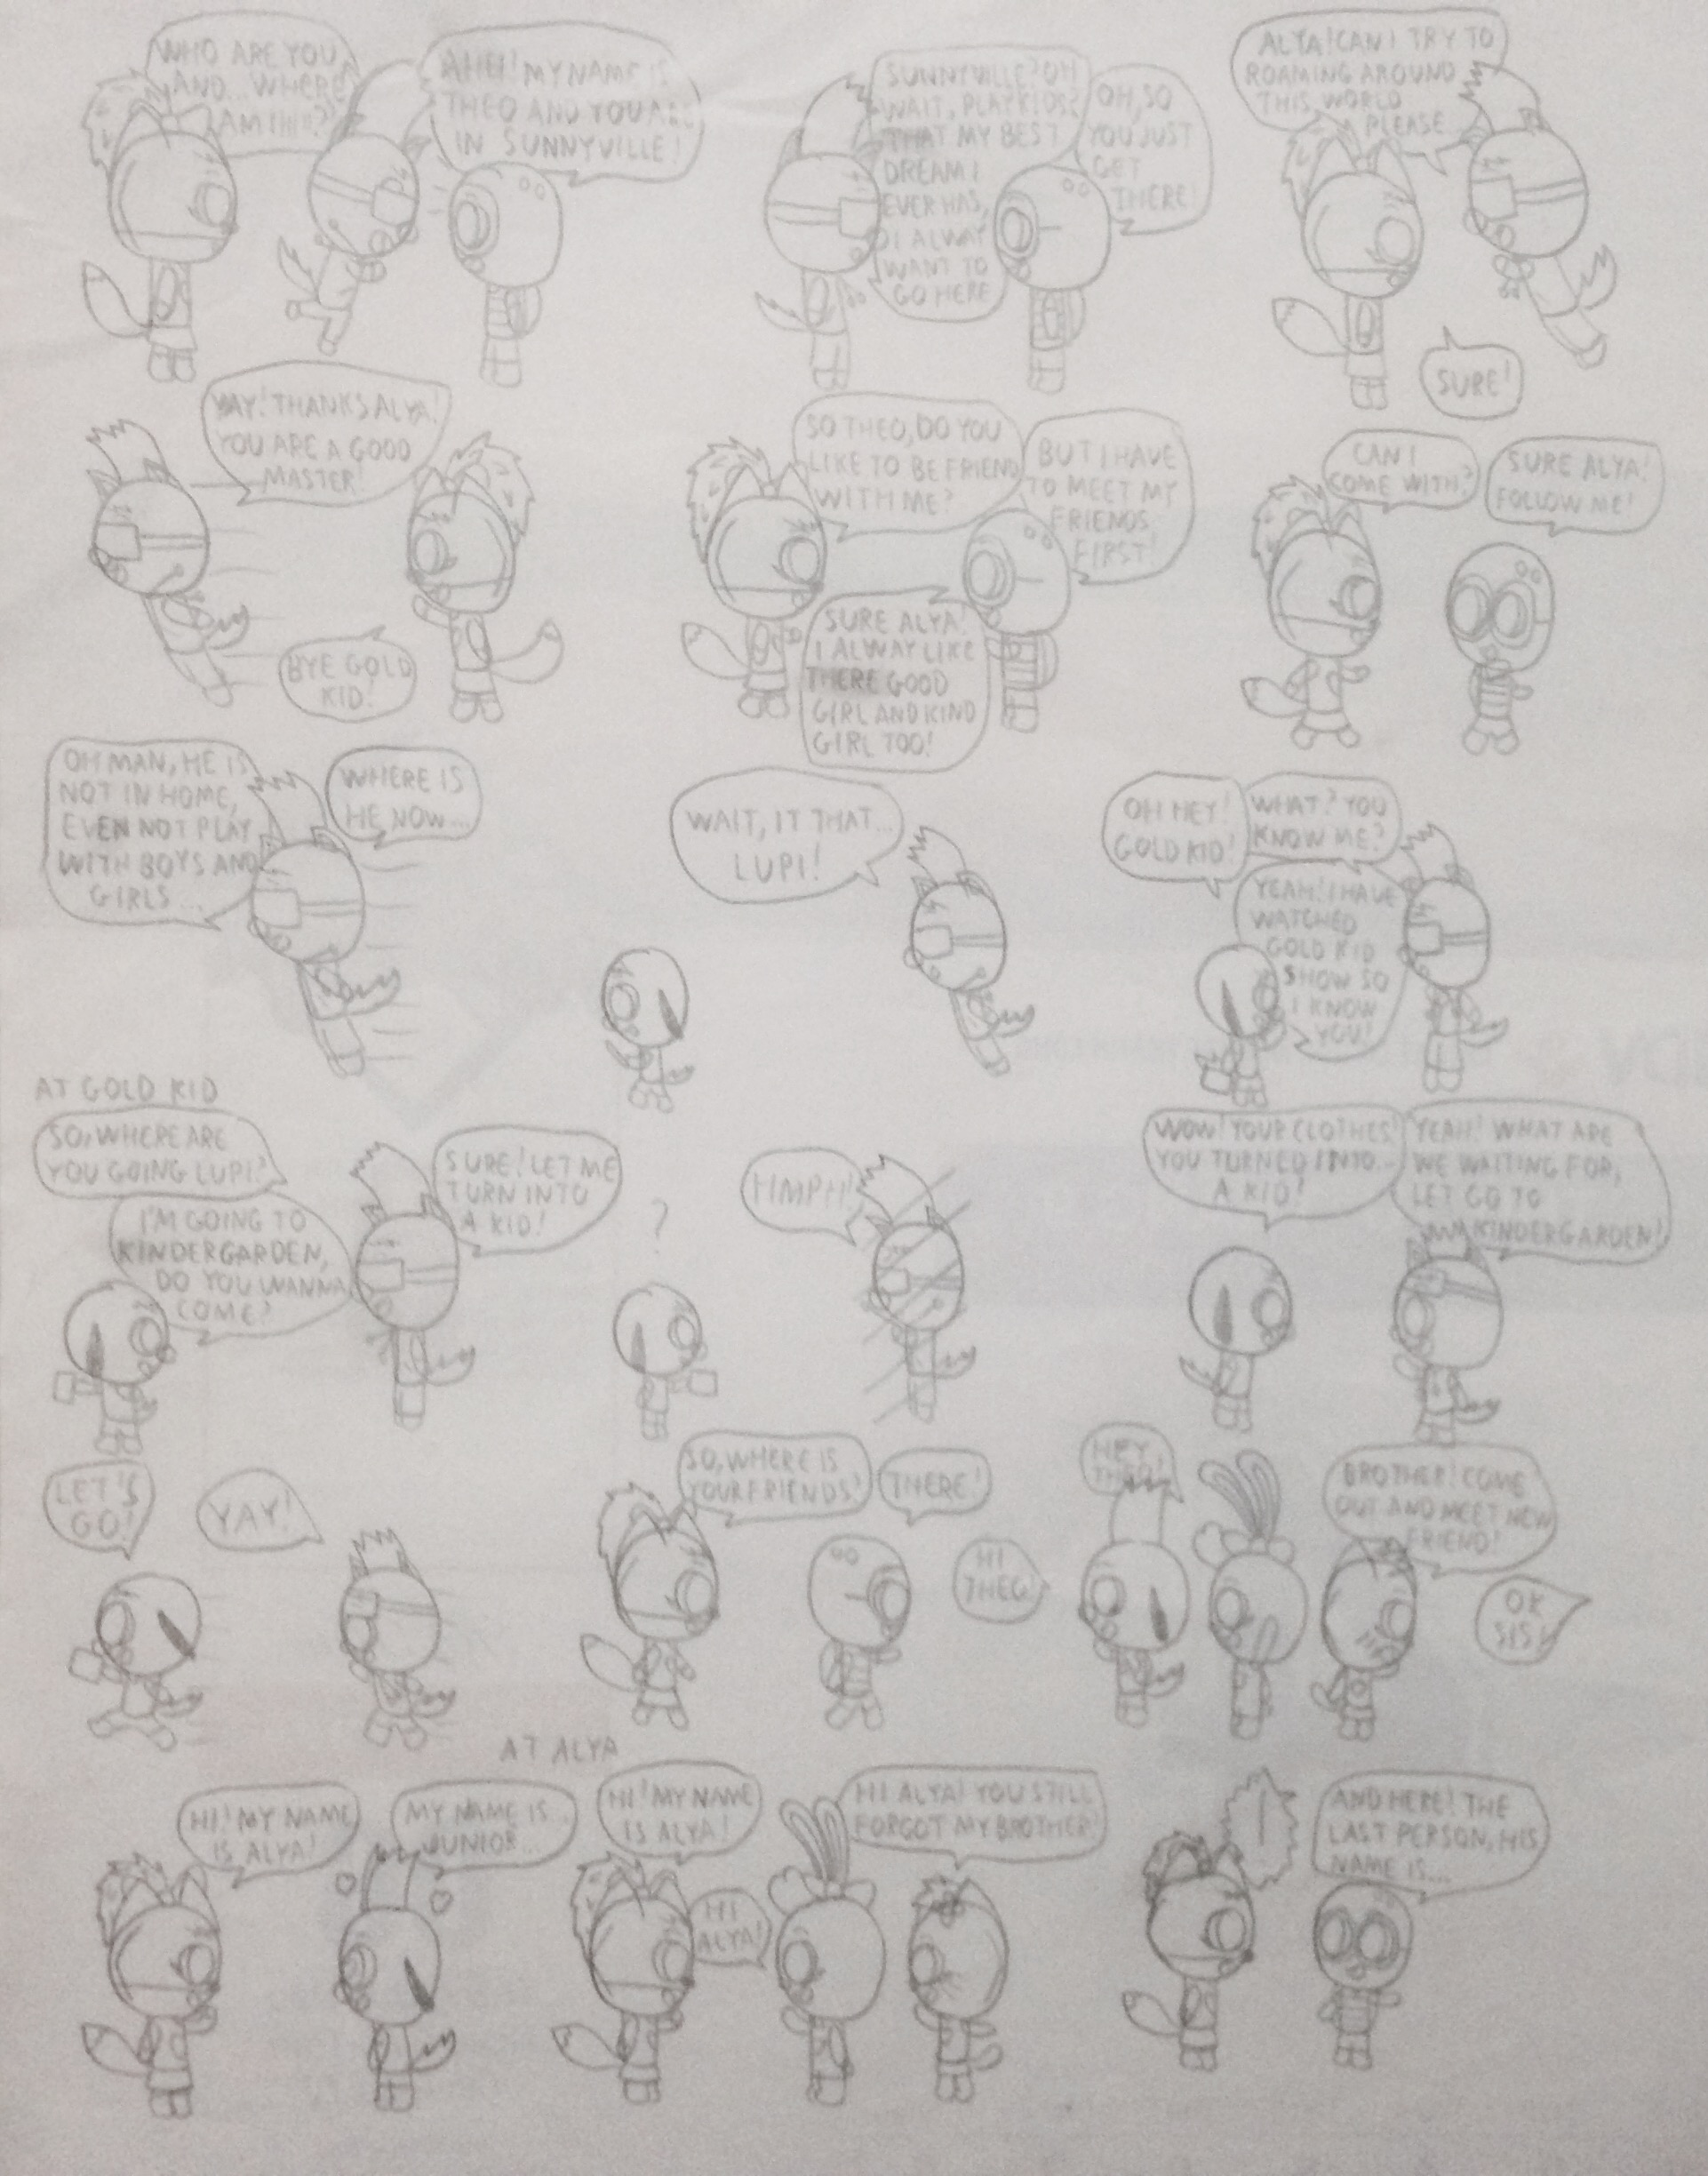 WHO ARE YOU
AND... WHERE
AM I!!!!?
MY NAME IS
THEO AND YOU ARE
IN SUNNYVILLE!
SUNNYVILLE? OH
WAIT, PLAYKIDS?
THAT MY BEST
DREAM I
EVER HAS,
I ALWAY
WANT TO
GO HERE
OH, SO
YOU JUST
GET
THERE!
ALYA! CAN I TRY TO
ROAMING AROUND
THIS WORLD
PLEASE
SURE!
YAY! THANKS ALYA!
YOU ARE A GOOD
MASTER!
BYE GOLD
KID!
SO THEO, DO YOU
LIKE TO BE FRIEND
WITH ME?
SURE ALYA!
I ALWAY LIKE
THERE GOOD
GIRL AND KIND
GIRL TOO!
BUT I HAVE
TO MEET MY
FRIENDS
FIRST!
CAN I
COME WITH?
SURE ALYA!
FOLLOW ME!
OH MAN, HE IS
NOT IN HOME,
EVEN NOT PLAY
WITH BOYS AND
GIRLS...
WHERE IS
HE NOW...
WAIT, IT THAT...
LUPI!
OH HEY!
GOLD KID!
WHAT? YOU
KNOW ME?
YEAH! I HAVE
WATCHED
GOLD KID
SHOW SO
I KNOW
YOU!
AT GOLD KID
SO, WHERE ARE
YOU GOING LUPI?
I'M GOING TO
KINDERGARDEN,
DO YOU WANNA
COME?
SURE! LET ME
TURN INTO
A KID!
?
HMPH!
WOW! YOUR CLOTHES!
YOU TURNED INTO...
A KID!
YEAH! WHAT ARE
WE WAITING FOR,
LET GO TO
KINDERGARDEN!
LET'S
GO!
YAY!
SO, WHERE IS
YOUR FRIENDS?
THERE!
HI
THEO
HEY,
THEO!
BROTHER! COME
OUT AND MEET NEW
FRIEND!
OK
SIS!
AT ALYA
HI! MY NAME
IS ALYA!
MY NAME IS...
JUNIOR...
HI! MY NAME
IS ALYA!
HI
ALYA!
HI ALYA! YOU STILL
FORGOT MY BROTHER!
AND HERE! THE
LAST PERSON, HIS
NAME IS...